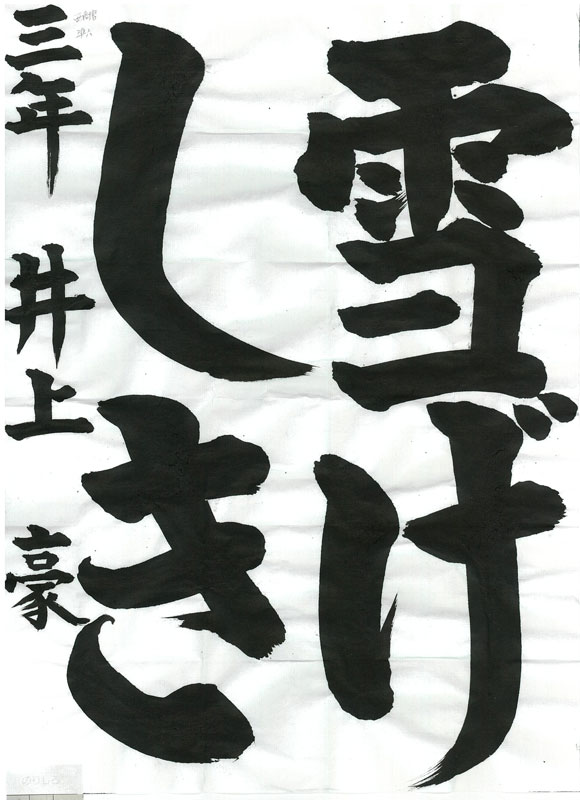 雪げ
しき
三年 井上 豪